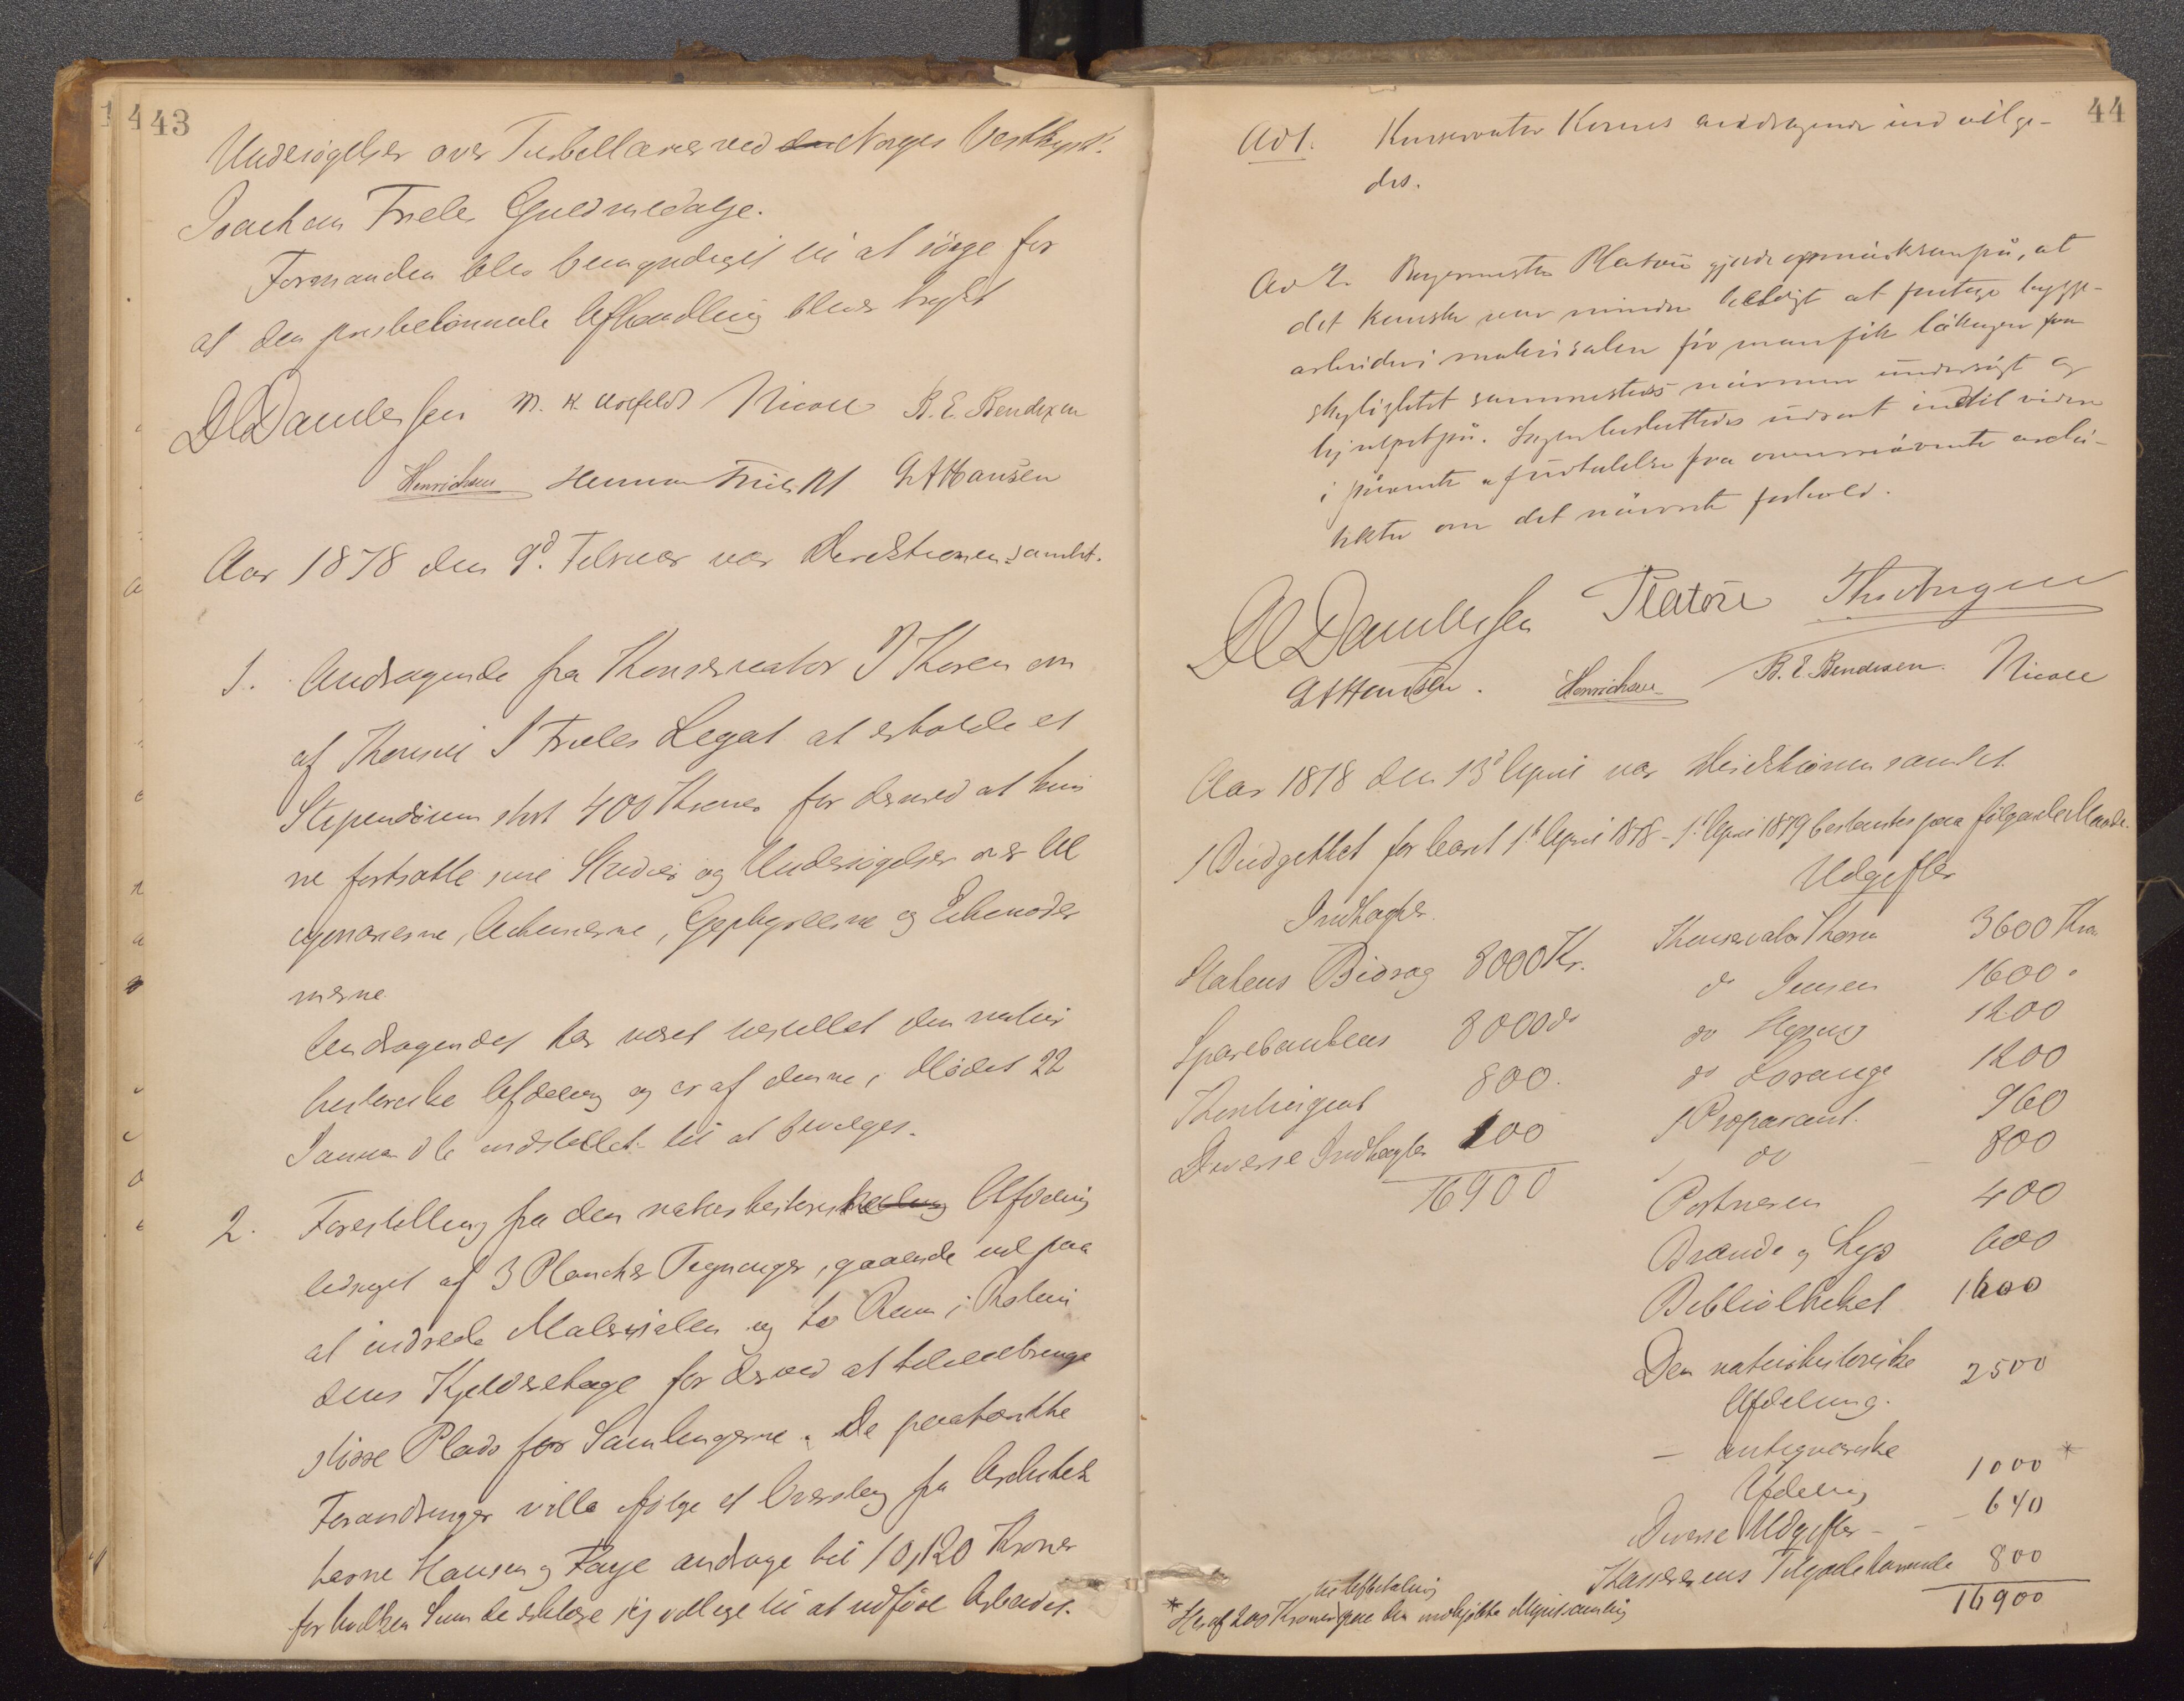 43
Undersøgelser over Turbellarier ved den Norges Vestkyst.
Joachim Frieles Guldmedalje.
Formanden blev bemyndiget til at sørge for
at den prisbelønnede Afhandling bliver trykt
DCDanielssen Nicoll B. E. Bendixen
Henrichsen Herman Friele GAHansen
Aar 1878 den 9d. Februar var Direktionen samlet.
1. Andragende fra Konservator J Koren om
af Konsul J Frieles Legat at erholde et
Stipendium stort 400 Kroner for dermed at kun
ne fortsætte sine Studier og Undersøgelser over Al
cyonarierne, Actinierne, Gephyreerne og Echinoder
merne.
Andragendet har været tilstillet den natur
historiske Afdeling og er af denne i Mødet 22
Januar d A indstillet til at bevilges.
2. Forestilling fra den naturhistoriske Afdeling
ledsaget af 3 Plancher Tegninger, gaaende ud paa
at indrede Malerisalen og to Rum i Rotun
dens Kjelderetage for derved at tilveiebringe
større Plads for Samlingerne. De paatænkte
Forandringer ville ifølge et Overslag fra Arkitek
terne Hansen og Kaye andrage til 10,120 Kroner
for hvilken Sum de erklære sig villige til at udføre Arbeidet.
44
Ad 1. Konservator Korens andragende indvilge-
des.
Ad 2. Borgermester Platou gjorde opmærksom på, at
det kanske var mindre heldigt at foretage bygge-
arbeider i malerisalen før man fik lækagen fra
skylightet sammesteds nærmere undersøgt og
hjulpet på. Sagen besluttedes udsat indtil videre
i påvente af udtalelse fra ovennævnte arki-
tekter om det nævnte forhold.
DCDanielssen Platou
GAHansen. Henrichsen B. E. Bendixen. Nicoll
Aar 1878 den 13d April var Direktionen samlet
1 Budgettet for Aaret 1st April 1878 – 1st April 1879 bestemtes paa følgende Maade.
Indtægter.
Statens Bidrag 8000 Kr.
Sparebankens 8000 do
Kontingent 800.
Diverse Indtægter 100
16900
Udgifter
Konservator Koren 3600 Kr.
do Jensen 1600 "
do 1200
do Lorange 1200
1 Præparant. 960
1 do – 800
Portneren 400
Brænde og Lys 600
Bibliotheket 1600
Den naturhistoriske 2500
Afdeling.
– antiqvariske
Afdeling 1000 *
Diverse Udgifter – – – 640
Kassererens Tilgodehavende 800
16900
til Afbetaling
* Heraf 200 Kroner paa den indkjøbte Myntsamling